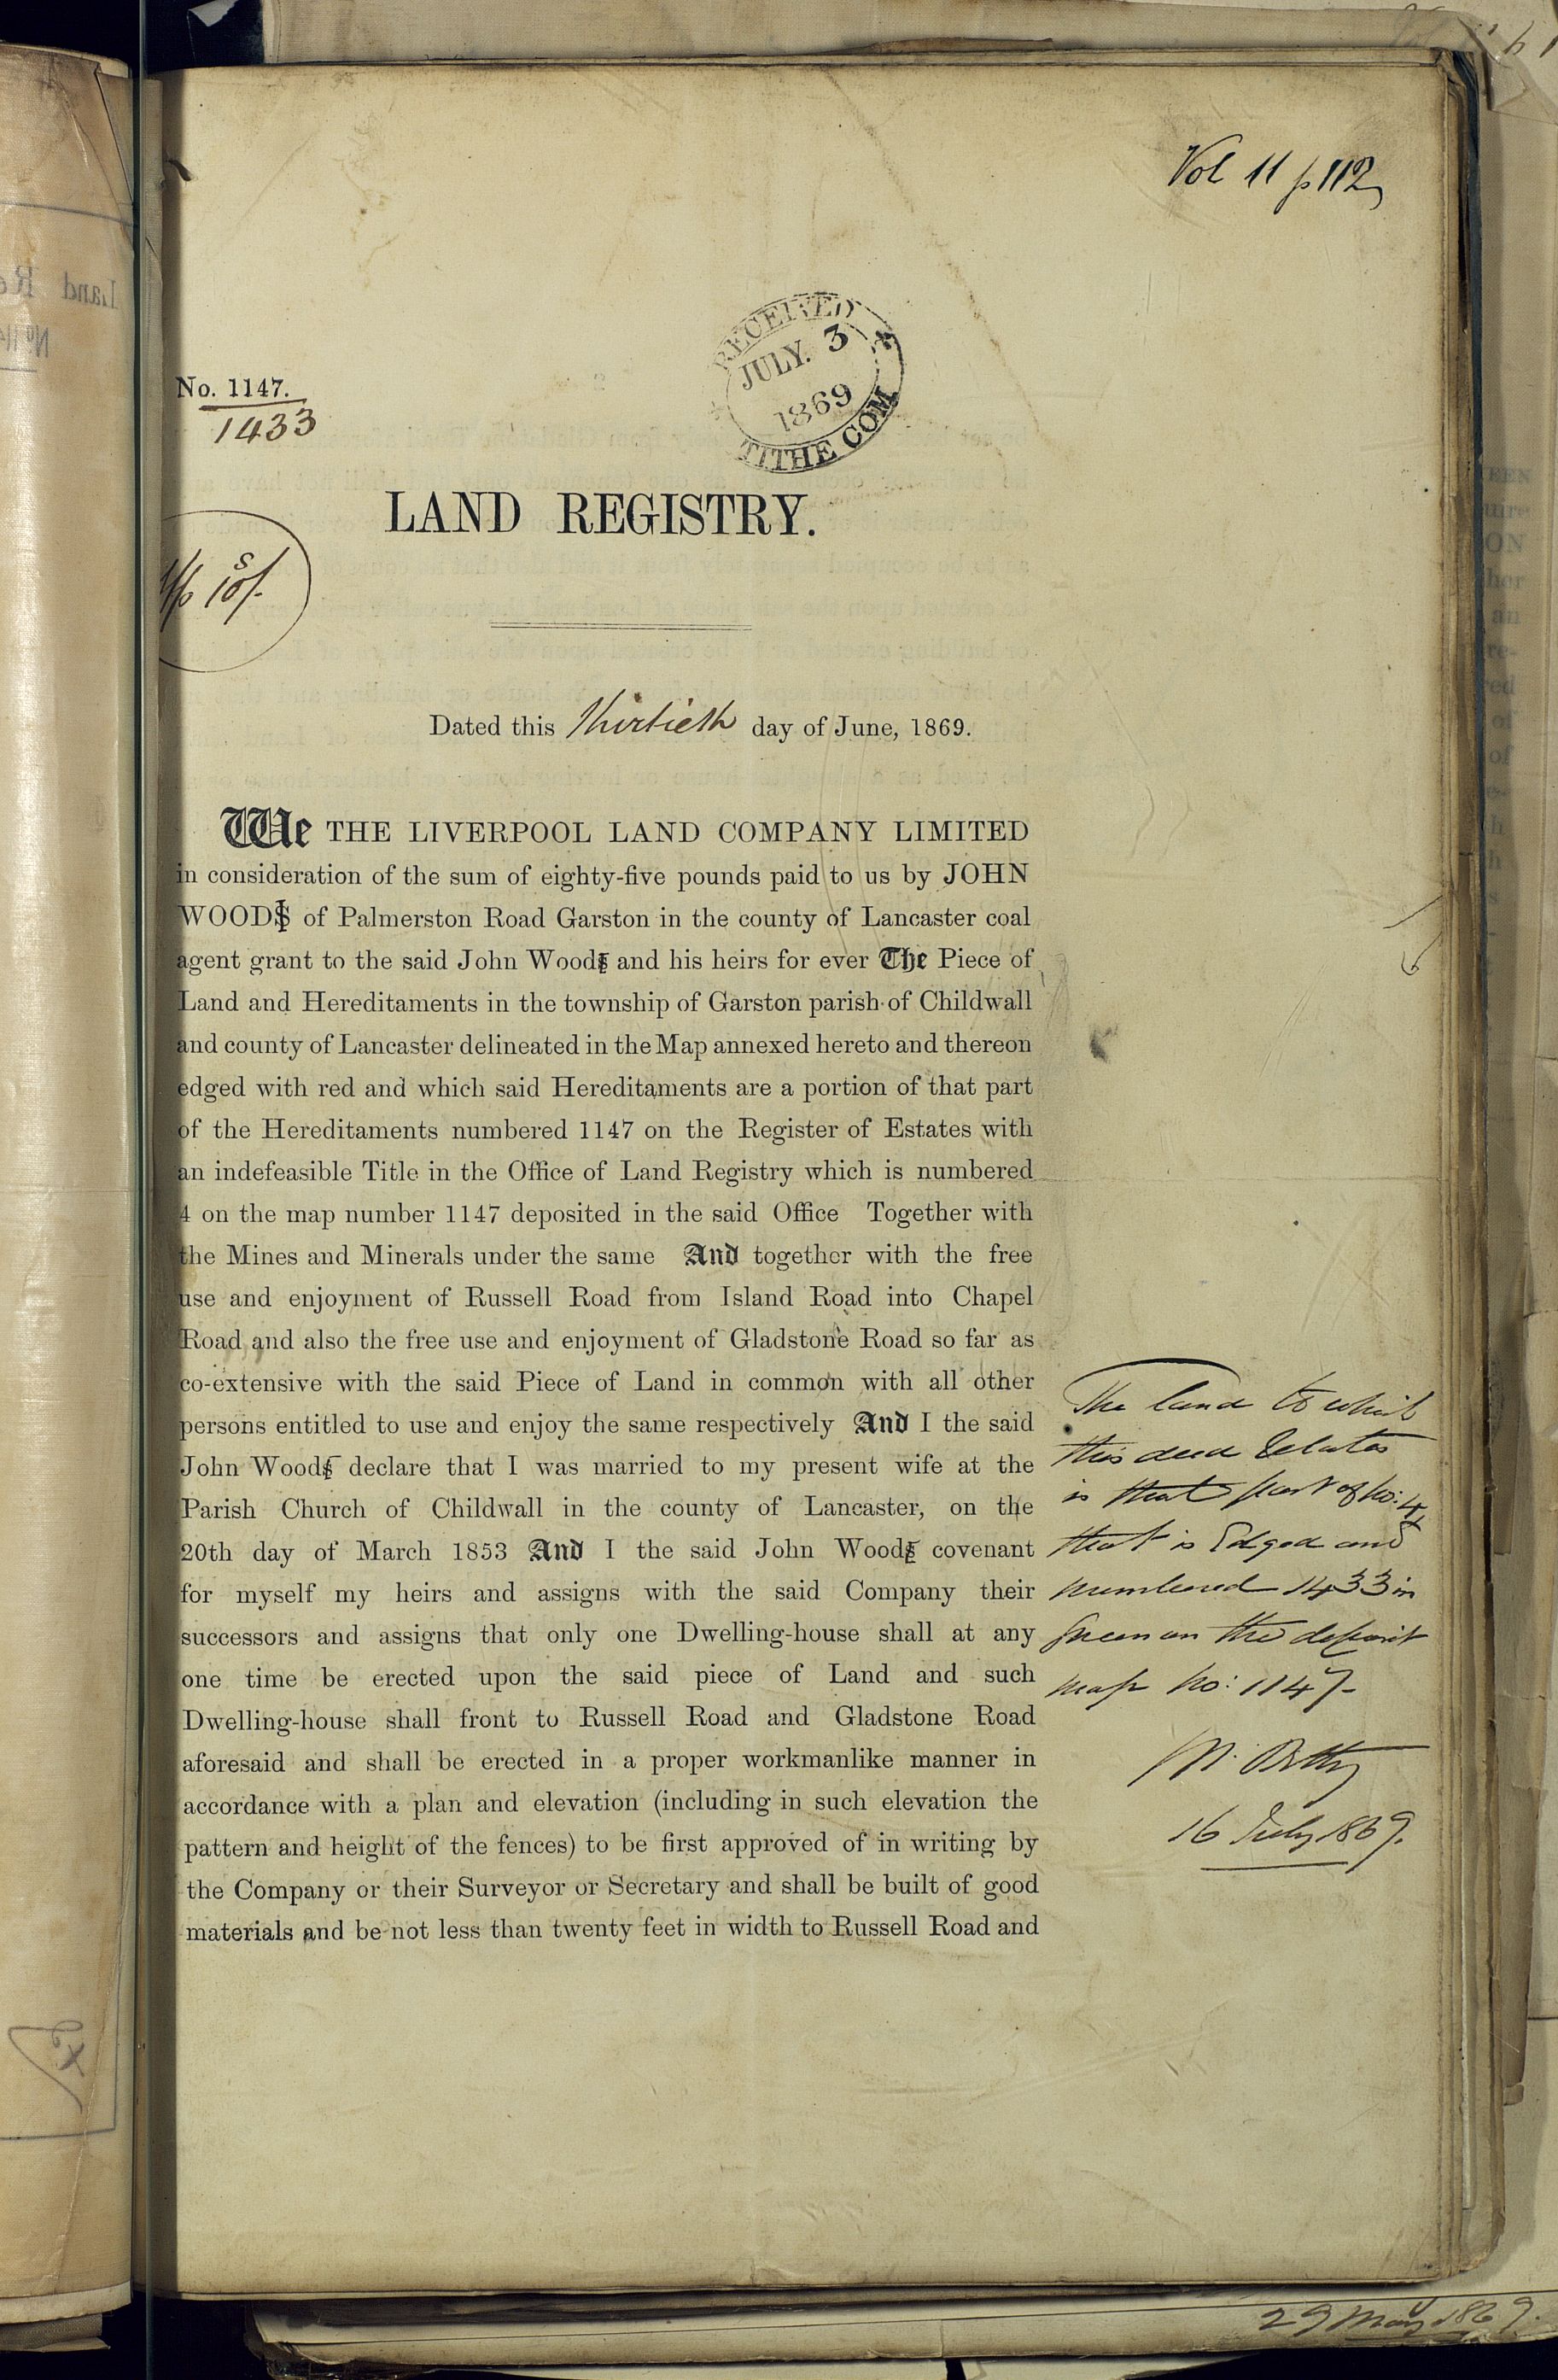 Vol 11 p 112
RECEIVED
JULY. 3
1869
TITHE COM
No. 1147.
1433
LAND REGISTRY.
10/-
Dated this thirtieth day of June, 1869.
We THE LIVERPOOL LAND COMPANY LIMITED
in consideration of the sum of eighty-five pounds paid to us by JOHN
WOODS of Palmerston Road Garston in the county of Lancaster coal
agent grant to the said John Woods and his heirs for ever The Piece of
Land and Hereditaments in the township of Garston parish of Childwall
and county of Lancaster delineated in the Map annexed hereto and thereon
edged with red and which said Hereditaments are a portion of that part
of the Hereditaments numbered 1147 on the Register of Estates with
an indefeasible Title in the Office of Land Registry which is numbered
4 on the map number 1147 deposited in the said Office Together with
the Mines and Minerals under the same And together with the free
use and enjoyment of Russell Road from Island Road into Chapel
Road and also the free use and enjoyment of Gladstone Road so far as
co-extensive with the said Piece of Land in common with all other
persons entitled to use and enjoy the same respectively And I the said
John Woods declare that I was married to my present wife at the
Parish Church of Childwall in the county of Lancaster, on the
20th day of March 1853 And I the said John Woods covenant
for myself my heirs and assigns with the said Company their
successors and assigns that only one Dwelling-house shall at any
one time be erected upon the said piece of Land and such
Dwelling-house shall front to Russell Road and Gladstone Road
aforesaid and shall be erected in a proper workmanlike manner in
accordance with a plan and elevation (including in such elevation the
pattern and height of the fences) to be first approved of in writing by
the Company or their Surveyor or Secretary and shall be built of good
materials and be not less than twenty feet in width to Russell Road and
The land to which
this deed relates
is that part of No: 4
that is Edged and
numbered 1433 in
Green on the deposit
map No: 1147-
16 July 1869.
29 May 1869.